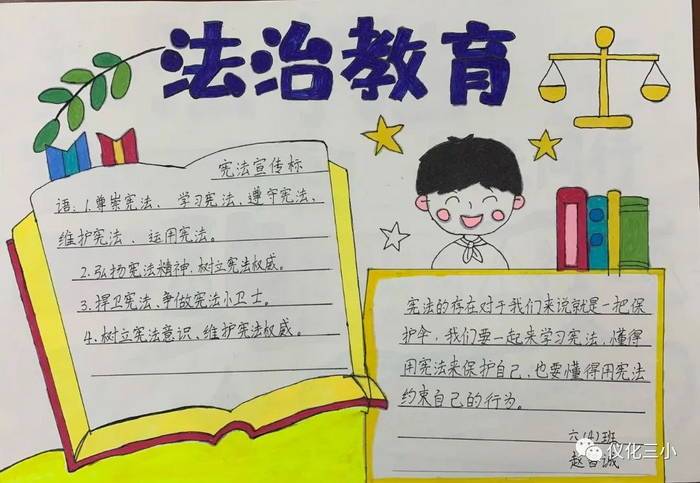 法治教育
宪法宣传标
语：1.尊崇宪法、学习宪法，遵守宪法，
维护宪法、运用宪法。
2.弘扬宪法精神，树立宪法权威。
3.捍卫宪法、争做宪法小卫士。
4.树立宪法意识，维护宪法权威。
宪法的存在对于我们来说就是一把保
护伞，我们要一起来学习宪法，懂得
用宪法来保护自己，也要懂得用宪法
约束自己的行为。
六(4)班
仪化三小